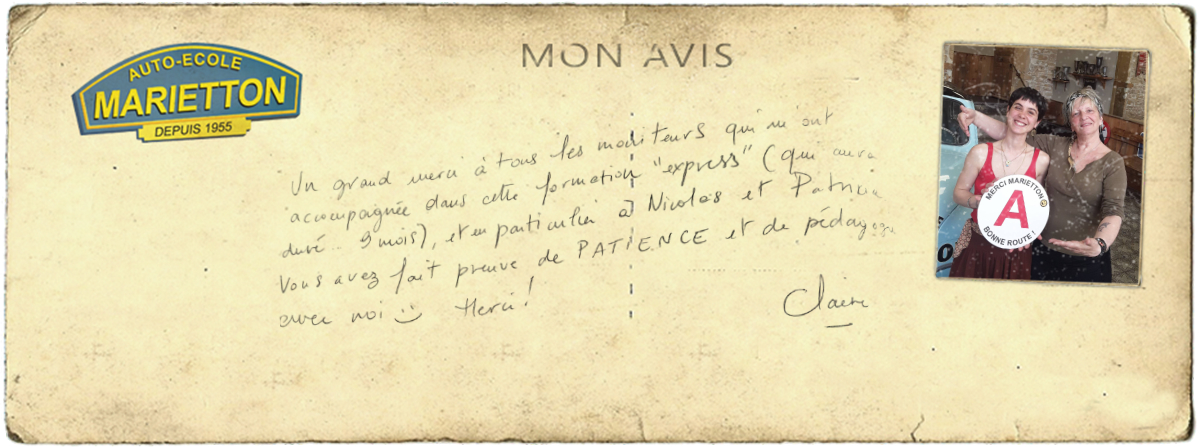 AUTO-ECOLE
MARIETTON
DEPUIS 1955
MON AVIS
Un grand merci à tous les moniteurs qui m'ont
accompagnée dans cette formation "express" (qui aura
duré 9 mois), et en particulier à Nicolas et Patricia
Vous avez fait preuve de PATIENCE et de pédagogie
avec moi :) Merci!
Claire
MERCI MARIETTON
A
BONNE ROUTE !